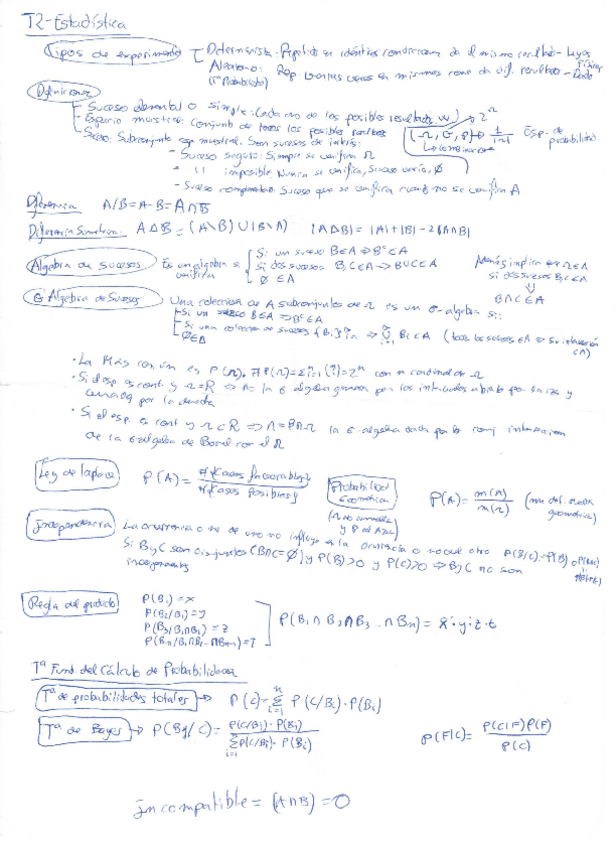 T2-Estadística
Tipos de experimento
Determinista: Repetido en idénticas condiciones da el mismo resultado - Leyes Físicas
Aleatorio: Rep varias veces en mismas cond da dif. resultados - Dado
(Tª Probabilidad)
Definiciones
Suceso elemental o simple: Cada uno de los posibles resultados
Espacio muestral: Conjunto de todos los posibles
Suceso: Subconjunto esp muestral. Son sucesos de interés:
Esp. de probabilidad
- Suceso seguro: Siempre se verifica Ω
- " imposible: Nunca se verifica, suceso vacío, ∅
- Suceso complementario: Suceso que se verifica cuando no se verifica A
Diferencia A/B = A-B = A∩B̄
Diferencia Simétrica: A Δ B = (A\B) ∪ (B\A) |AΔB| = |A|+|B| - 2|A∩B|
Álgebra de sucesos
Es un álgebra si verifica
Si un suceso B∈A ⇒ Bᶜ∈A
Si dos sucesos B,C∈A ⇒ B∪C∈A
∅∈A
Además implica que Ω∈A
si dos sucesos B,C∈A
⇓
B∩C∈A
σ Álgebra de Sucesos
Una colección de A subconjuntos de Ω es un σ-álgebra si:
- Si un suceso B∈A ⇒ Bᶜ∈A
- Si una colección de sucesos
∅∈A
· La más común es P(Ω),
· Si el esp. es cont. y Ω=R ⇒ A= la σ álgebra
por la derecha
· Si el esp. es cont y Ω⊂R ⇒ la σ-álgebra dada por la conj intersección
de la σ-álgebra de Borel con el Ω
Ley de Laplace
P(A) = #{Casos favorables} / #{Casos posibles}
Probabilidad Geométrica
P(A) = m(A) / m(Ω)
geométrica)
Independencia
La ocurrencia o no de uno no influye en la ocurrencia o no del otro P(B/C)=P(B)
Si B y C son disjuntos (B∩C=∅) y P(B)>0 y P(C)>0 ⇒ B y C no son
independientes
Regla del producto
P(B₁) = x
P(B₂/B₁) = y
P(B₃/B₁∩B₂) = z
P(Bn/B₁∩B₂...∩Bn-1) = t
P(B₁∩B₂∩B₃...∩Bn) = x·y·z·t
Tª Fund del Cálculo de Probabilidades
Tª de probabilidades totales → P(C) = Σⁿᵢ₌₁ P(C/Bᵢ)·P(Bᵢ)
Tª de Bayes → P(Bj/C) = P(C/Bj)·P(Bj) / Σᵢ₌₁ P(C/Bᵢ)·P(Bᵢ)
P(F|C) = P(C|F)P(F) / P(C)
Incompatible = (A∩B) = 0